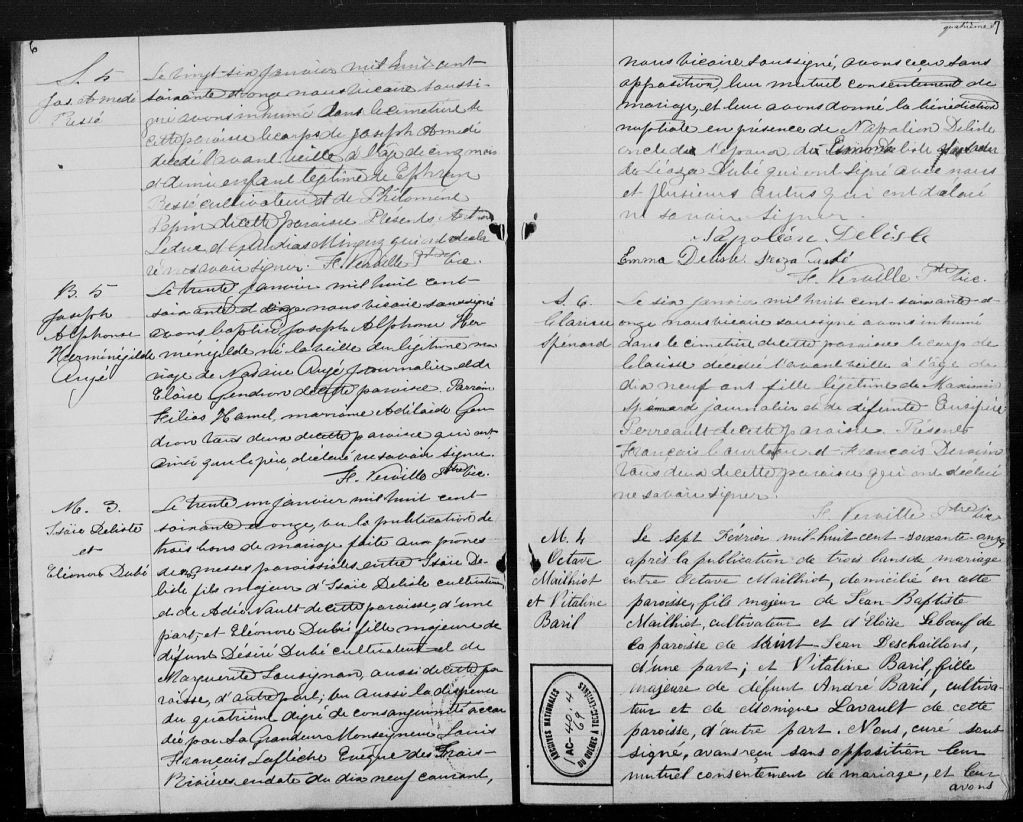 6
S. 5
Jos. Amedé
Bessé
Le vingt-six janvier mil huit cent
soixante et onze nous vicaire soussi-
gné avons inhumé dans le cimetière de
cette paroisse le corps de Joseph Amedé
décédé l'avant veille à l'âge de cinq mois
et demi enfant légitime de Ephrem
Bessé cultivateur et de Philomene
Pepin de cette paroisse Présents
Leduc et qui ont décla-
ré ne savoir signer. F. Verville Ptre Vic.
B. 5
Joseph
Alphonse
Herménégilde
Augé
Le trente janvier mil huit cent-
soixante et onze nous vicaire soussigné
avons baptisé Joseph Alphonse Her-
ménégilde né la veille du légitime ma-
riage de Nazaire Augé journalier et de
Eloïse Gendron de cette paroisse. Parrain
Hamel, marraine Adélaïde Gen-
dron tous deux de cette paroisse qui ont
ainsi que le père déclaré ne savoir signer.
F. Verville Ptre Vic.
M. 3.
Isaïe Delisle
et
Eléonore Dubé
Le trente un janvier mil huit cent-
soixante et onze, vu la publication de
trois bans de mariage faite aux prones
de nos messes paroissiales entre Isaïe De-
lisle fils majeur d'Isaïe Delisle cultivateur
et de Nault de cette paroisse, d'une
part, et Eléonore Dubé fille majeure de
défunt Désiré Dubé cultivateur et de
Marguerite Lousignan, aussi de cette pa-
roisse, d'autre part; vu aussi la dispense
du quatrième degré de consanguinité accor-
dée par Sa Grandeur Monseigneur Louis
François Laflèche Evêque des Trois-
Rivières en date du dix neuf courant,
quatrième 7
nous vicaire soussigné, avons reçu sans
opposition, leur mutuel consentement de
mariage, et leur avons donné la bénédiction
nuptiale en présence de Napoléon Delisle
oncle de l'époux, de Emma Delisle
de Léoza Dubé qui ont signé avec nous
et plusieurs autres qui ont déclaré
ne savoir signer.
Napoléon Delisle
Emma Delisle Leoza Dubé
F. Verville Ptre Vic.
S. 6.
Clarisse
Spenard
Le six janvier mil huit cent soixante et
onze nous vicaire soussigné avons inhumé
dans le cimetière de cette paroisse le corps de
Clarisse décédée l'avant veille à l'âge de
dix neuf ans fille légitime de
Spenard journalier et de défunte
Perreault de cette paroisse. Présents
François et François
tous deux de cette paroisse qui ont déclaré
ne savoir signer.
F. Verville Ptre Vic
M. 4
Octave
Mailhiot
et Vitaline
Baril
Le sept Février mil-huit-cent-soixante-onze
après la publication de trois bans de mariage
entre Octave Mailhiot, domicilié en cette
paroisse, fils majeur de Jean-Baptiste
Mailhiot, cultivateur et d'Eloïse Leboeuf de
la paroisse de Saint Jean Deschaillons,
d'une part; et Vitaline Baril, fille
majeure de défunt André Baril, cultiva-
teur et de Monique Lavault de cette
paroisse, d'autre part. Nous, curé sous-
signé, avons reçu sans opposition leur
mutuel consentement de mariage, et leur
avons
ARCHIVES NATIONALES
AC-40-4
69
DU QUÉBEC À TROIS-RIVIÈRES